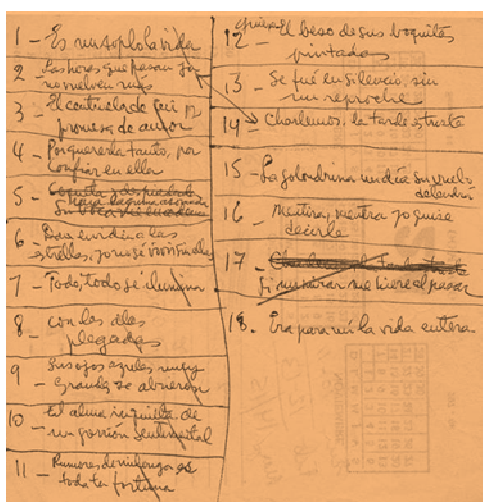 1 - Es un soplo la vida
2 - Las horas que pasan ya
no vuelven más
3 - El consuelo de
promesa de amor
4 - Por quererla tanto, por
confiar en ella
5 - Coqueta, despiadada
Su boca
6 Dan envidia a las
estrellas, yo no sé vivir sin ellos
7 - Todo, todo se ilumina
8 - con las alas
plegadas
9 - Sus ojos azules muy
grandes se abrieron
10 - El alma inquieta de
un gorrión sentimental
11 - Rumores de milonga es
toda tu fortuna
12 - El beso de sus boquitas
pintadas
13 - Se fué en silencio, sin
un reproche
14 - Charlemos, la tarde es triste
15 - La golondrina un día su vuelo
detendrá
16 - Mentira, mentira yo quise
decirle
17 -
Si su mirar me hiere al pasar
18. Era para mí la vida entera